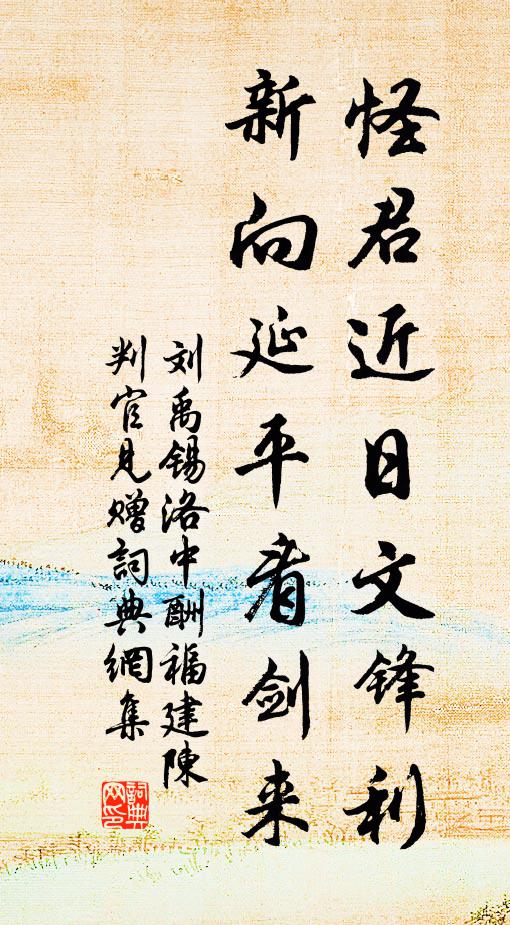 怪君近日文锋利
新向延平看剑来
刘禹锡洛中酬福建陳
判官見赠詞典網集
詞典
网印